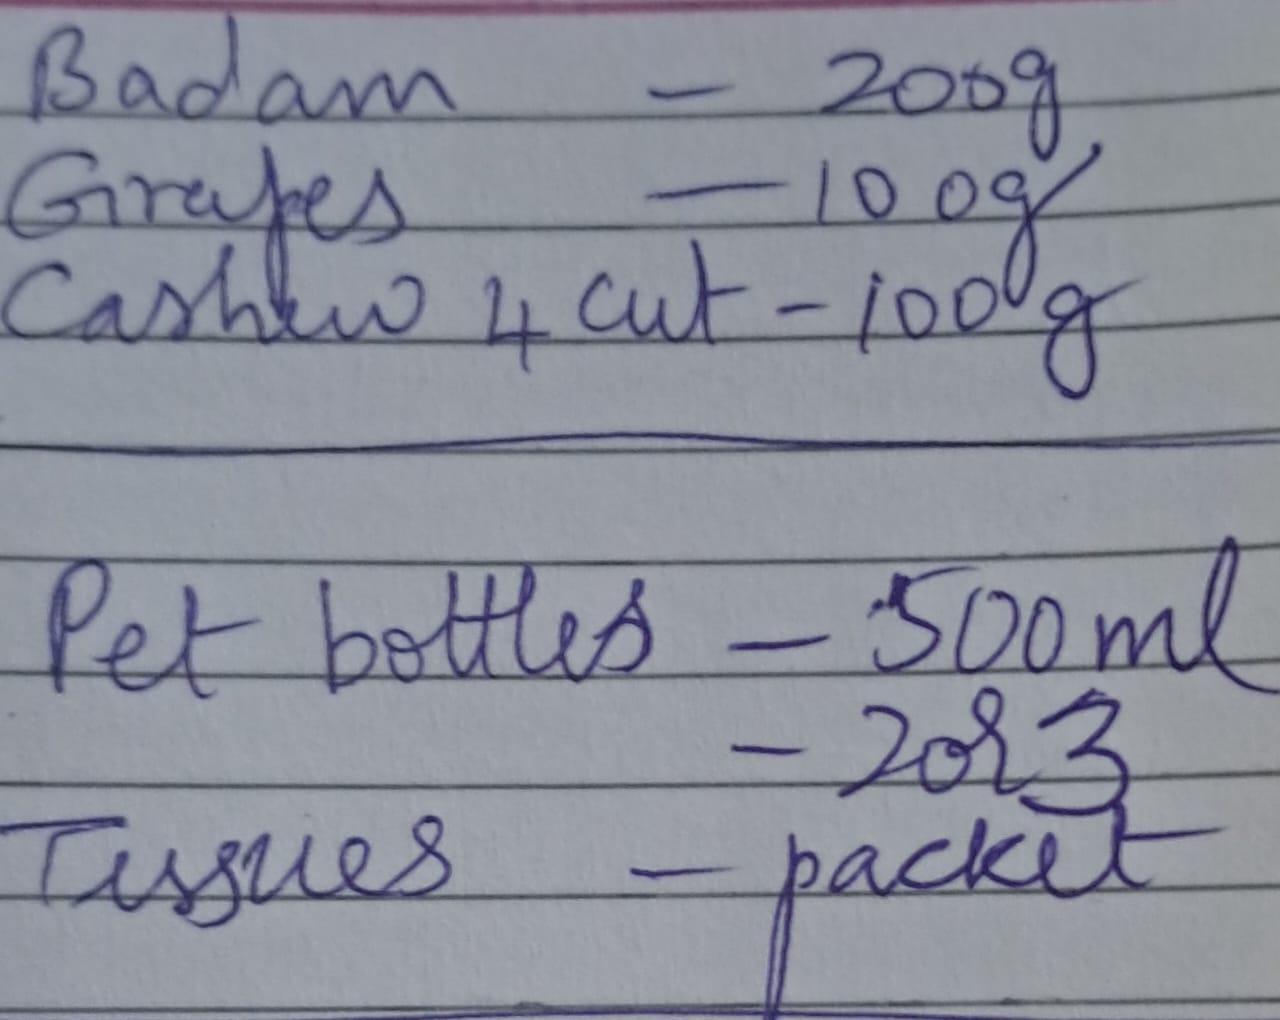 Badam - 200g
Grapes - 100g
Cashew 4 cut - 100g
Pet bottles - 500ml
- 2 or 3
Tissues - packet